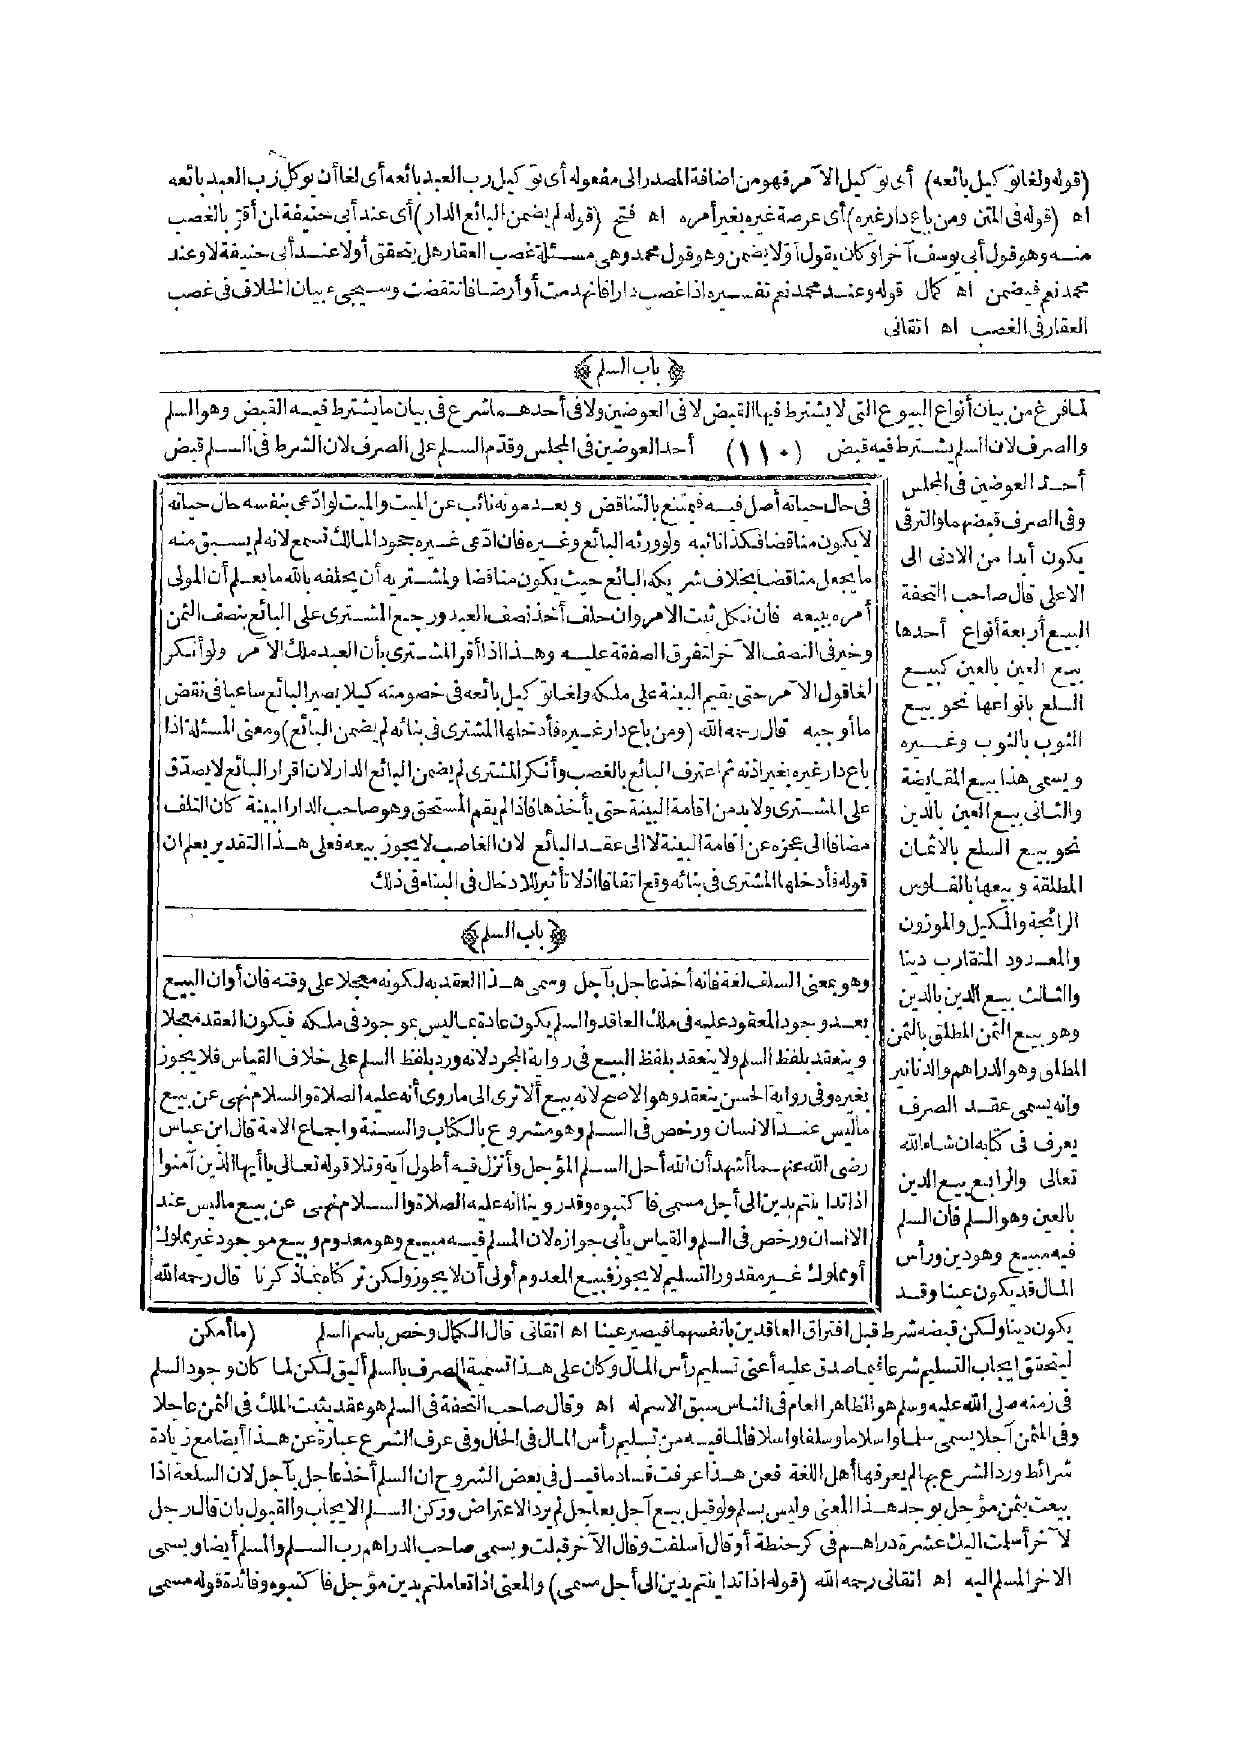 (قوله ولغا توكيل بائعه) أى توكيل الآمر فهو من اضافة المصدر الى مفعوله أى توكيل رب العبد بائعه أى لغا أن يوكل رب العبد بائعه
اه (قوله فى المتن ومن باع دار غيره) أى عرصة غيره بغير أمره اه فتح (قوله لم يضمن البائع الدار) أى عند أبى حنيفة ان أقر بالغصب
منه وهو قول أبى يوسف آخرا وكان يقول أولا يضمن وهو قول محمد وهى مسئلة غصب العقار هل يتحقق أولا عند أبى حنيفة لا وعند
محمد نعم فيضمن اه كمال قوله وعند محمد نعم تفسيره اذا غصب دارا فانهدمت أو أرضا فانتقضت وسيجىء بيان الخلاف فى غصب
العقار فى الغصب اه اتقانى
﴿ باب السلم ﴾
لما فرغ من بيان أنواع البيوع التى لا يشترط فيها القبض لا فى العوضين ولا فى أحدهما شرع فى بيان ما يشترط فيه القبض وهو السلم
والصرف لان السلم يشترط فيه قبض (١١٠) أحد العوضين فى المجلس وقدم السلم على الصرف لان الشرط فى السلم قبض
أحد العوضين فى المجلس
وفى الصرف قبضهما والترقى
يكون أبدا من الادنى الى
الاعلى قال صاحب التحفة
البيع أربعة أنواع أحدها
بيع العين بالعين كبيع
السلع بأنواعها نحو بيع
الثوب بالثوب وغيره
ويسمى هذا بيع المقايضة
والثانى بيع العين بالدين
نحو بيع السلع بالاثمان
المطلقة وبيعها بالفلوس
الرائجة والمكيل والموزون
والمعدود المتقارب دينا
والثالث بيع الدين بالدين
وهو بيع الثمن المطلق بالثمن
المطلق وهو الدراهم والدنانير
وانه يسمى عقد الصرف
يعرف فى كتابه ان شاء الله
تعالى والرابع بيع الدين
بالعين وهو السلم فان السلم
فيه مبيع وهو دين ورأس
المال قد يكون عينا وقد
يكون دينا ولكن قبضه شرط قبل افتراق العاقدين بانفسهما فيصير عينا اه اتقانى قال الكمال وخص باسم السلم (ما أمكن
لتحقق ايجاب التسليم شرعا فيما صدق عليه أعنى تسليم رأس المال وكان على هذا تسمية الصرف بالسلم أليق لكن لما كان وجود السلم
فى زمنه صلى الله عليه وسلم هو الظاهر العام فى الناس سبق الاسم له اه وقال صاحب التحفة فى السلم هو عقد يثبت الملك فى الثمن عاجلا
وفى المثمن آجلا يسمى سلما واسلاما وسلفا واسلافا لما فيه من تسليم رأس المال فى الحال وفى عرف الشرع عبارة عن هذا أيضا مع زيادة
شرائط ورد الشرع بها لم يعرفها أهل اللغة فعن هذا عرفت فساد ما قيل فى بعض الشروح ان السلم أخذ عاجل بآجل لان السلعة اذا
بيعت بثمن مؤجل يوجد هذا المعنى وليس بسلم ولو قيل بيع آجل بعاجل لم يرد الاعتراض وركن السلم الايجاب والقبول بان قال رجل
لآخر أسلمت اليك عشرة دراهم فى كر حنطة أو قال أسلفت وقال الآخر قبلت ويسمى صاحب الدراهم رب السلم والمسلم أيضا ويسمى
الاخر المسلم اليه اه اتقانى رحمه الله (قوله اذا تداينتم بدين الى أجل مسمى) والمعنى اذا تعاملتم بدين مؤجل فاكتبوه وفائدة قوله مسمى
فى حال حياته أصل فيه فيمتنع بالتناقض وبعد موته نائب عن الميت والميت لو ادعى بنفسه حال حياته
لا يكون مناقضا فكذا نائبه ولو ورثه البائع وغيره فان ادعى غيره جحود المالك تسمع لانه لم يسبق منه
ما يجعل مناقضا بخلاف شريكه البائع حيث يكون مناقضا وللمشتريه أن يحلفه بالله ما يعلم أن المولى
أمره ببيعه فان نكل ثبت الامر وان حلف أخذ نصف العبد ورجع المشترى على البائع بنصف الثمن
وخير فى النصف الآخر لتفرق الصفقة عليه وهذا اذا أقر المشترى بأن العبد ملك الآمر ولو أنكر
لغا قول الآمر حتى يقيم البينة على ملكه ولغا توكيل بائعه فى خصومته كيلا يصير البائع ساعيا فى نقض
ما أوجبه قال رحمه الله (ومن باع دار غيره فأدخلها المشترى فى بنائه لم يضمن البائع) ومعنى المسئلة اذا
باع دار غيره بغير اذنه ثم اعترف البائع بالغصب وأنكر المشترى لم يضمن البائع الدار لان اقرار البائع لا يصدق
على المشترى ولا بد من اقامة البينة حتى يأخذها فاذا لم يقم المستحق وهو صاحب الدار البينة كان التلف
مضافا الى عجزه عن اقامة البينة لا الى عقد البائع لان الغاصب لا يجوز بيعه فعلى هذا التقدير يعلم ان
قوله فأدخلها المشترى فى بنائه وقع اتفاقا اذ لا تأثير للادخال فى البناء فى ذلك
﴿ باب السلم ﴾
وهو بمعنى السلف لغة فانه أخذ عاجل بآجل وسمى هذا العقد به لكونه معجلا على وقته فان أوان البيع
بعد وجود المعقود عليه فى ملك العاقد والسلم يكون عادة بما ليس بموجود فى ملكه فيكون العقد معجلا
وينعقد بلفظ السلم ولا ينعقد بلفظ البيع فى رواية المجرد لانه ورد بلفظ السلم على خلاف القياس فلا يجوز
بغيره وفى رواية الحسن ينعقد وهو الاصح لانه بيع ألا ترى الى ما روى أنه عليه الصلاة والسلام نهى عن بيع
ما ليس عند الانسان ورخص فى السلم وهو مشروع بالكتاب والسنة واجماع الامة قال ابن عباس
رضى الله عنهما أشهد أن الله أحل السلم المؤجل وأنزل فيه أطول آية وتلا قوله تعالى يا أيها الذين آمنوا
اذا تداينتم بدين الى أجل مسمى فاكتبوه وقد روينا انه عليه الصلاة والسلام نهى عن بيع ما ليس عند
الانسان ورخص فى السلم والقياس يأبى جوازه لان المسلم فيه مبيع وهو معدوم وبيع موجود غير مملوك
أو مملوك غير مقدور التسليم لا يجوز فبيع المعدوم أولى أن لا يجوز ولكن تركناه بما ذكرنا قال رحمه الله